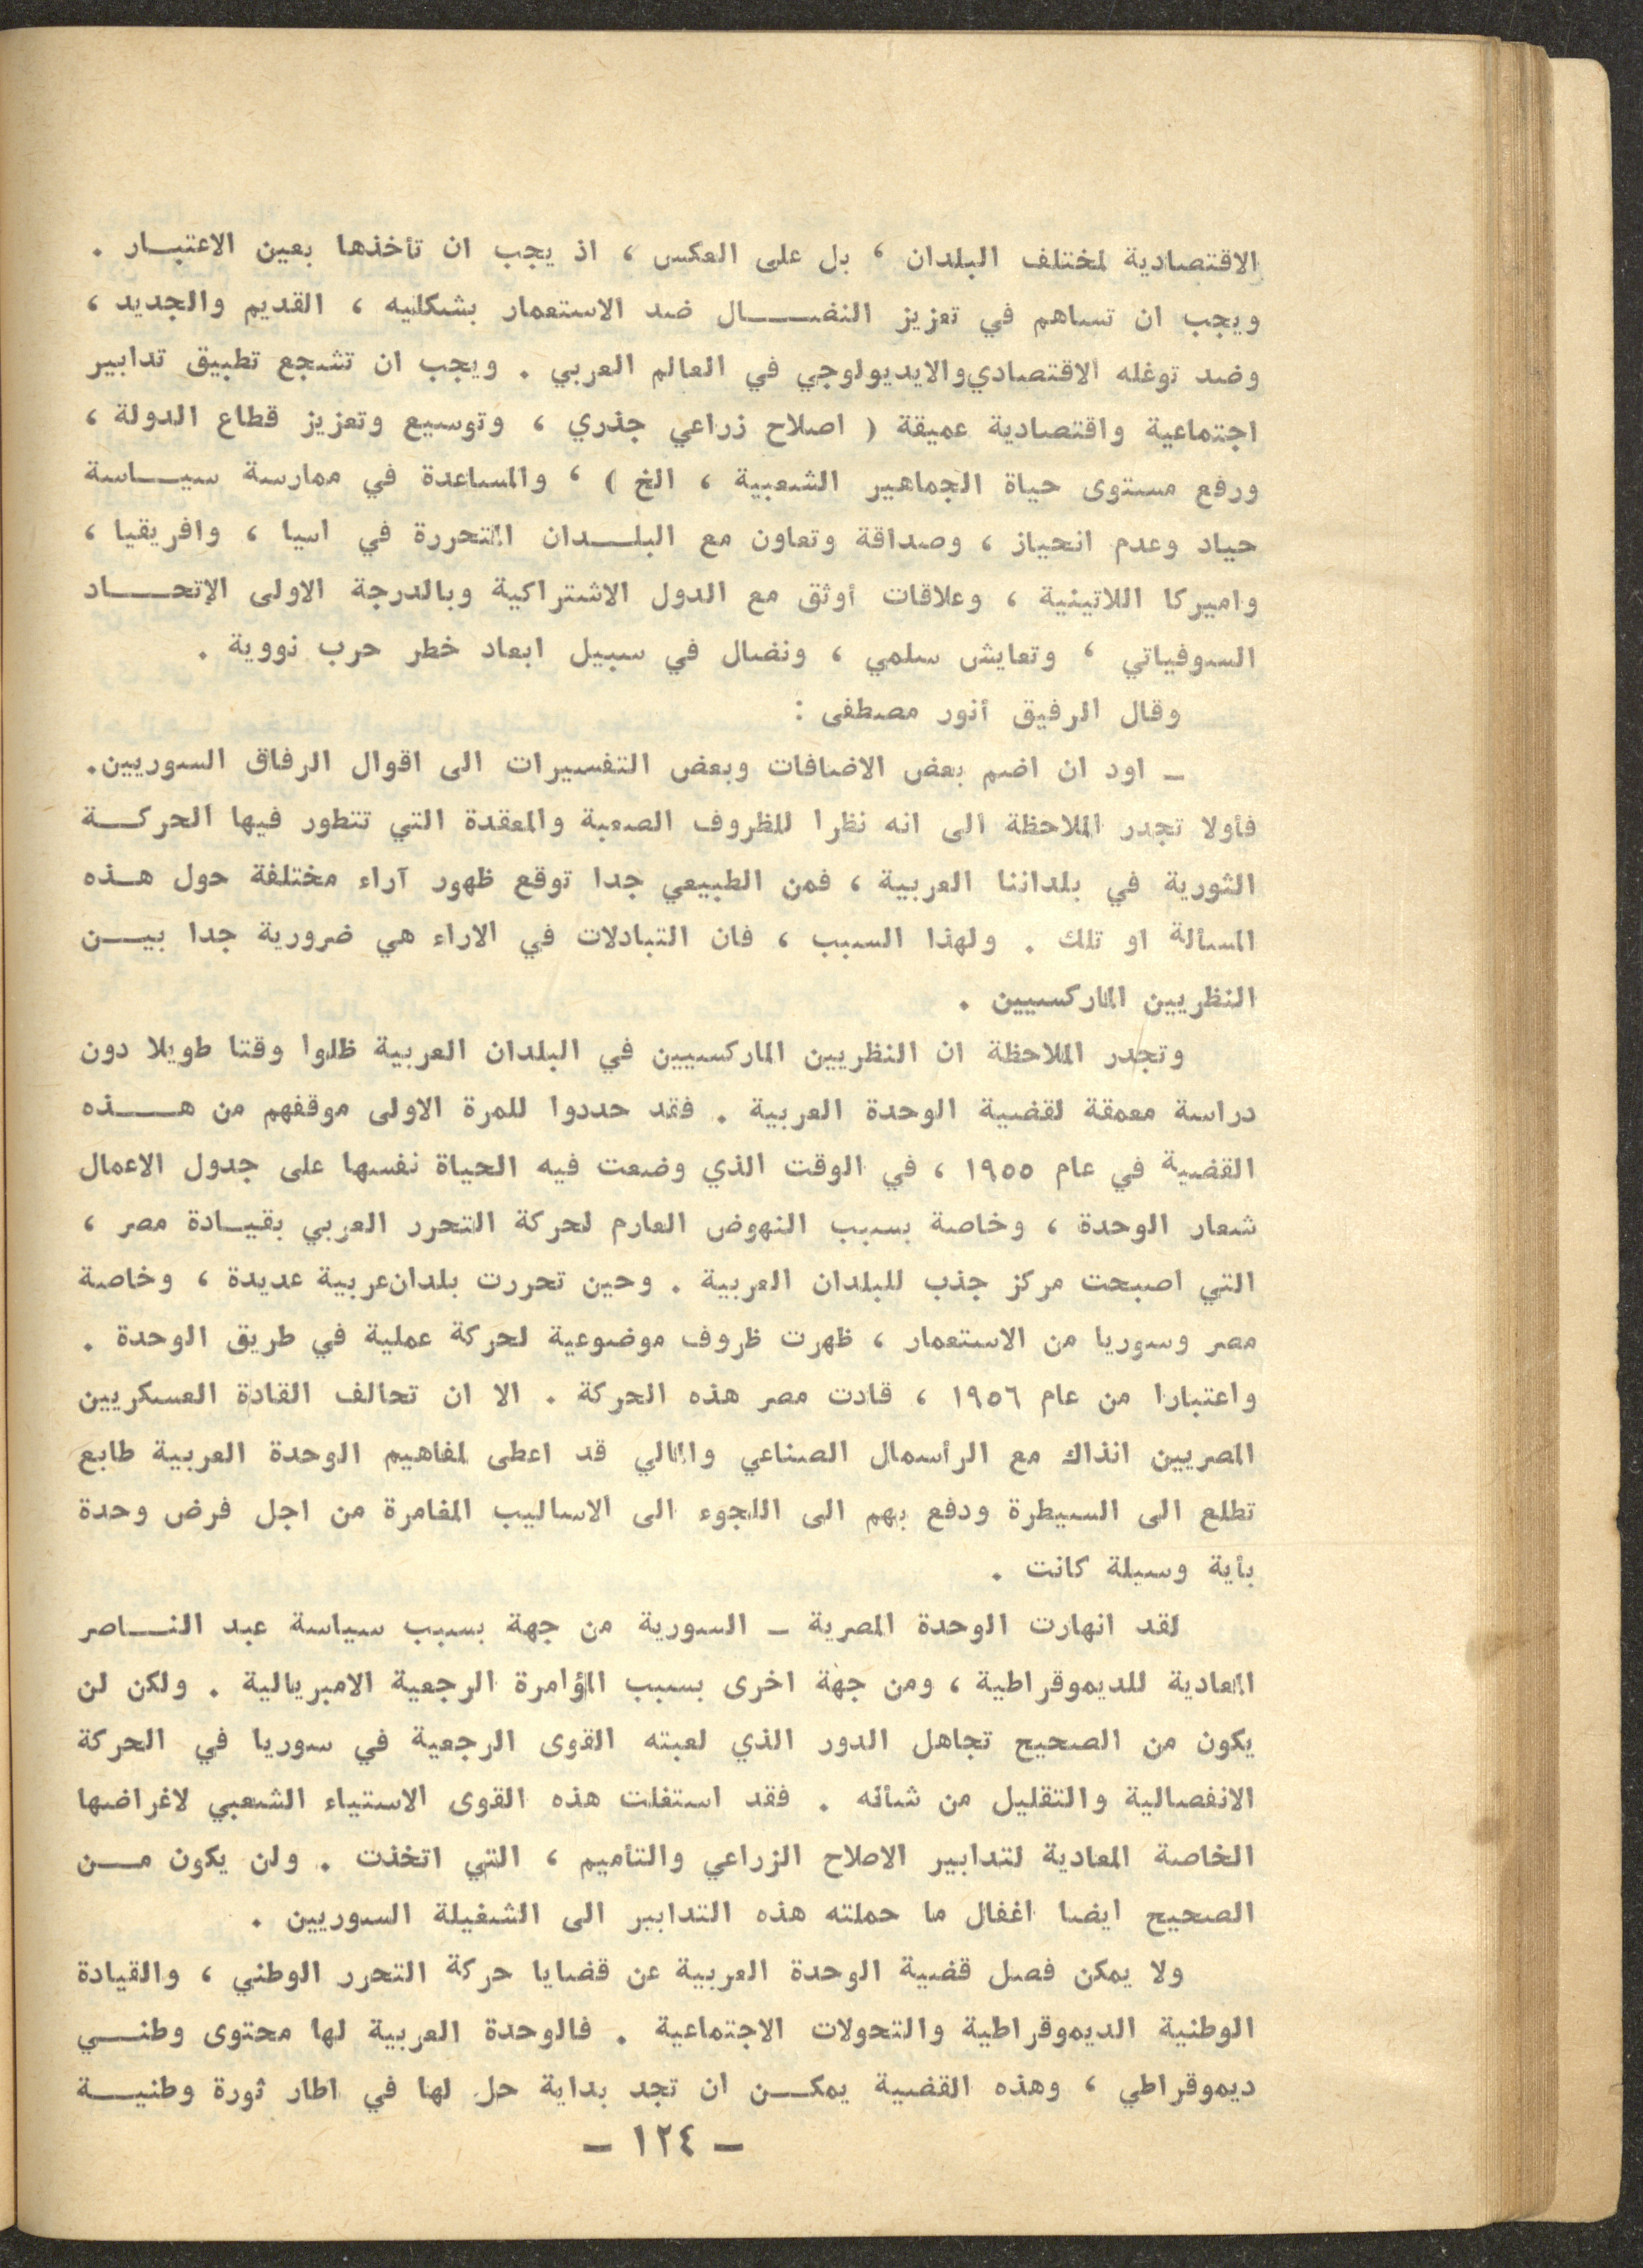 الاقتصادية لمختلف البلدان ، بل على العكس ، اذ يجب ان تأخذها بعين الاعتبار .
ويجب ان تساهم في تعزيز النضال ضد الاستعمار بشكليه ، القديم والجديد ،
وضد توغله الاقتصادي والايديولوجي في العالم العربي . ويجب ان تشجع تطبيق تدابير
اجتماعية واقتصادية عميقة ( اصلاح زراعي جذري ، وتوسيع وتعزيز قطاع الدولة ،
ورفع مستوى حياة الجماهير الشعبية ، الخ ) ، والمساعدة في ممارسة سياسة
حياد وعدم انحياز ، وصداقة وتعاون مع البلدان المتحررة في اسيا ، وافريقيا ،
واميركا اللاتينية ، وعلاقات أوثق مع الدول الاشتراكية وبالدرجة الاولى الإتحاد
السوفياتي ، وتعايش سلمي ، ونضال في سبيل ابعاد خطر حرب نووية .
وقال الرفيق أنور مصطفى :
ـ اود ان اضم بعض الاضافات وبعض التفسيرات الى اقوال الرفاق السوريين.
فأولا تجدر الملاحظة الى انه نظرا للظروف الصعبة والمعقدة التي تتطور فيها الحركة
الثورية في بلداننا العربية ، فمن الطبيعي جدا توقع ظهور آراء مختلفة حول هذه
المسألة او تلك . ولهذا السبب ، فان التبادلات في الاراء هي ضرورية جدا بين
النظريين الماركسيين .
وتجدر الملاحظة ان النظريين الماركسيين في البلدان العربية ظلوا وقتا طويلا دون
دراسة معمقة لقضية الوحدة العربية . فقد حددوا للمرة الاولى موقفهم من هذه
القضية في عام ١٩٥٥ ، في الوقت الذي وضعت فيه الحياة نفسها على جدول الاعمال
شعار الوحدة ، وخاصة بسبب النهوض العارم لحركة التحرر العربي بقيادة مصر ،
التي اصبحت مركز جذب للبلدان العربية . وحين تحررت بلدان عربية عديدة ، وخاصة
مصر وسوريا من الاستعمار ، ظهرت ظروف موضوعية لحركة عملية في طريق الوحدة .
واعتبارا من عام ١٩٥٦ ، قادت مصر هذه الحركة . الا ان تحالف القادة العسكريين
المصريين انذاك مع الرأسمال الصناعي والمالي قد اعطى لمفاهيم الوحدة العربية طابع
تطلع الى السيطرة ودفع بهم الى اللجوء الى الاساليب المغامرة من اجل فرض وحدة
بأية وسيلة كانت .
لقد انهارت الوحدة المصرية ـ السورية من جهة بسبب سياسة عبد الناصر
المعادية للديموقراطية ، ومن جهة اخرى بسبب المؤامرة الرجعية الامبريالية . ولكن لن
يكون من الصحيح تجاهل الدور الذي لعبته القوى الرجعية في سوريا في الحركة
الانفصالية والتقليل من شأنه . فقد استغلت هذه القوى الاستياء الشعبي لاغراضها
الخاصة المعادية لتدابير الاصلاح الزراعي والتأميم ، التي اتخذت . ولن يكون من
الصحيح ايضا اغفال ما حملته هذه التدابير الى الشغيلة السوريين .
ولا يمكن فصل قضية الوحدة العربية عن قضايا حركة التحرر الوطني ، والقيادة
الوطنية الديموقراطية والتحولات الاجتماعية . فالوحدة العربية لها محتوى وطني
ديموقراطي ، وهذه القضية يمكن ان تجد بداية حل لها في اطار ثورة وطنية
ـ ١٢٤ ـ